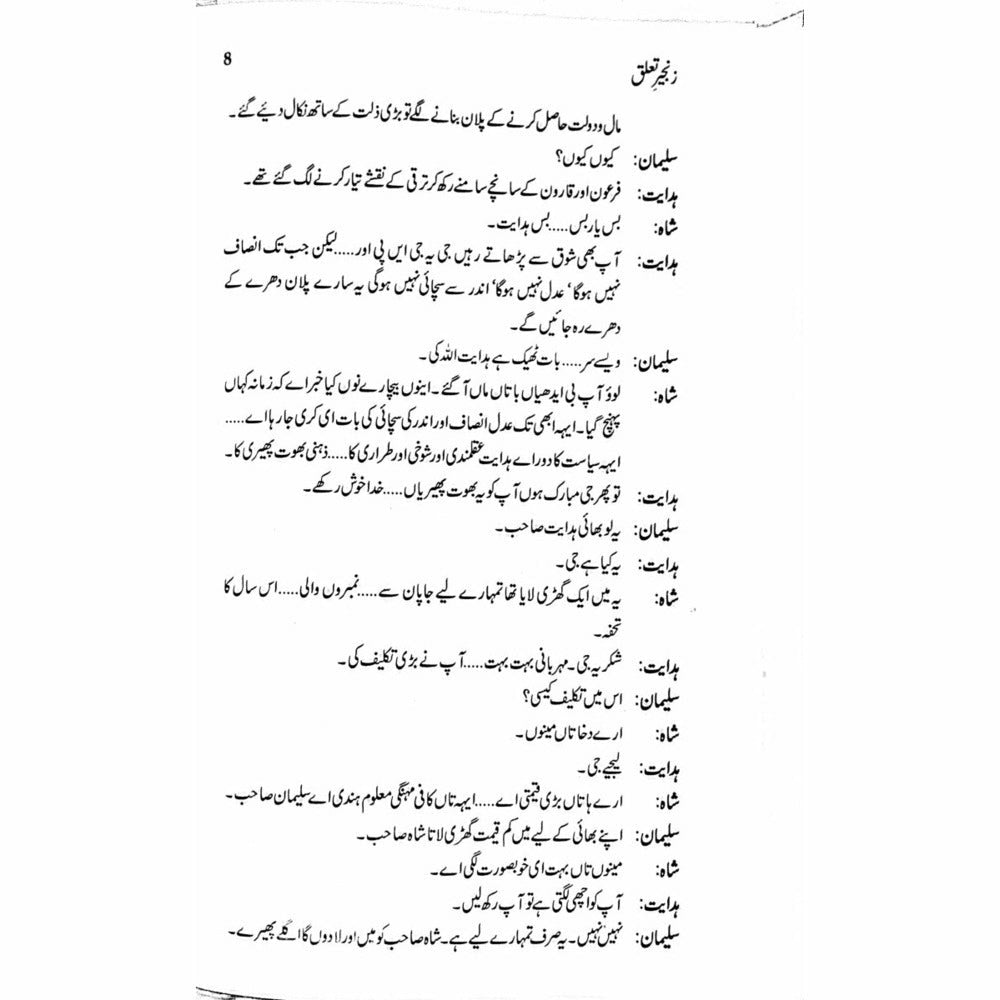 زنجیرِ تعلق
8
مال و دولت حاصل کرنے کے پلان بنانے لگے تو بڑی ذلت کے ساتھ نکال دیئے گئے۔
سلیمان: کیوں کیوں؟
ہدایت: فرعون اور قارون کے سانچے سامنے رکھ کر ترقی کے نقشے تیار کرنے لگ گئے تھے۔
شاہ: بس یار بس.....بس ہدایت۔
ہدایت: آپ بھی شوق سے پڑھاتے رہیں جی یہ جی ایس پی اور.....لیکن جب تک انصاف
نہیں ہوگا‘ عدل نہیں ہوگا‘ اندر سے سچائی نہیں ہوگی یہ سارے پلان دھرے کے
دھرے رہ جائیں گے۔
سلیمان: ویسے سر.....بات ٹھیک ہے ہدایت اللہ کی۔
شاہ: لوؤ آپ بی ایدھیاں باتاں ماں آ گئے۔ اینوں بیچارے نوں کیا خبر اے کہ زمانہ کہاں
پہنچ گیا۔ ایہہ ابھی تک عدل انصاف اور اندر کی سچائی کی بات ای کری جا رہا اے.....
ایہہ سیاست کا دور اے ہدایت عقلمندی اور شوخی اور طراری کا.....ذہنی بھوت پھیری کا۔
ہدایت: تو پھر جی مبارک ہوں آپ کو یہ بھوت پھیریاں.....خدا خوش رکھے۔
سلیمان: یہ لو بھائی ہدایت صاحب۔
ہدایت: یہ کیا ہے جی۔
شاہ: یہ میں ایک گھڑی لایا تھا تمہارے لیے جاپان سے.....نمبروں والی.....اس سال کا
تحفہ۔
ہدایت: شکریہ جی۔ مہربانی بہت بہت.....آپ نے بڑی تکلیف کی۔
سلیمان: اس میں تکلیف کیسی؟
شاہ: ارے دخا تاں مینوں۔
ہدایت: لیجیے جی۔
شاہ: ارے ہا تاں بڑی قیمتی اے.....ایہہ تاں کافی مہنگی معلوم ہندی اے سلیمان صاحب۔
سلیمان: اپنے بھائی کے لیے میں کم قیمت گھڑی لاتا شاہ صاحب۔
شاہ: مینوں تاں بہت ای خوبصورت لگی اے۔
ہدایت: آپ کو اچھی لگتی ہے تو آپ رکھ لیں۔
سلیمان: نہیں نہیں۔ یہ صرف تمہارے لیے ہے۔ شاہ صاحب کو میں اور لا دوں گا اگلے پھیرے۔